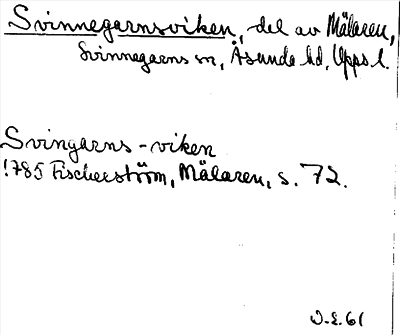 Svinnegarnsviken, del av Mälaren,
Svinnegarns sn, Åsunda hd, Upps. l.
Svingarns-viken
1785 Fischerström, Mälaren, s. 72.
O.E. 61